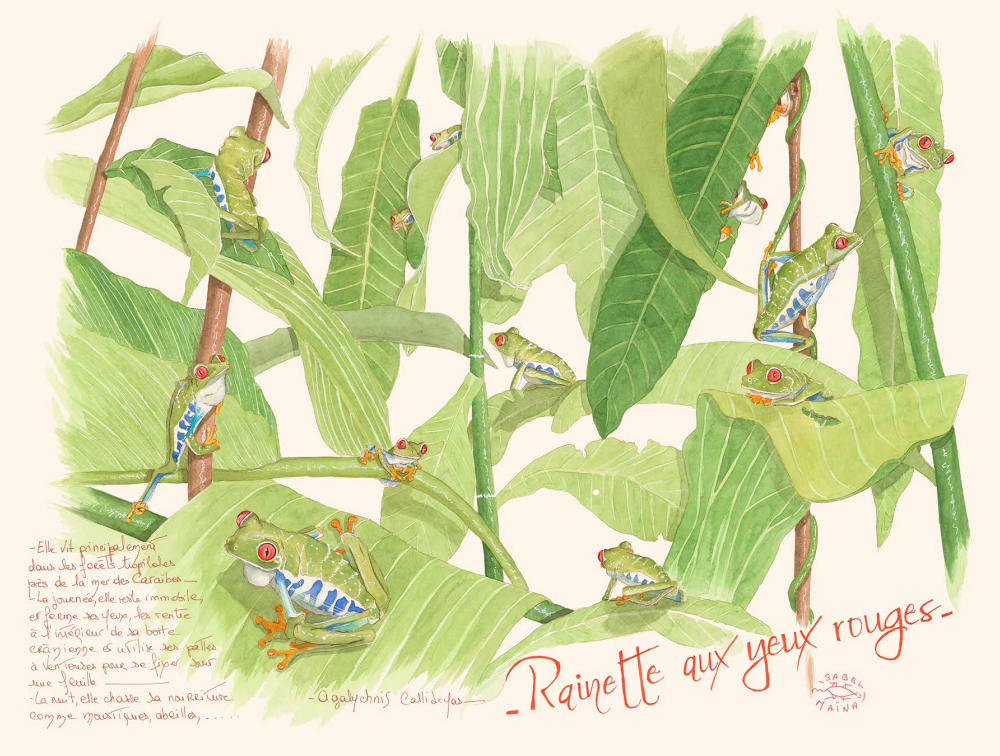 -Elle vit principalement
dans les forêts tropilales
près de la mer des Caraibes_
-La journée, elle reste immobile,
et ferme ses yeux, les rentre
à l'intérieur de sa boite
crânienne et utilise ses pattes
à ventouses pour se fixer sur
une feuille
-La nuit, elle chasse sa nourriture
comme moustiques, abeilles, .....
-Agalychnis Callidryas-
-Rainette aux yeux rouges-
ISABEL
MAÏNA